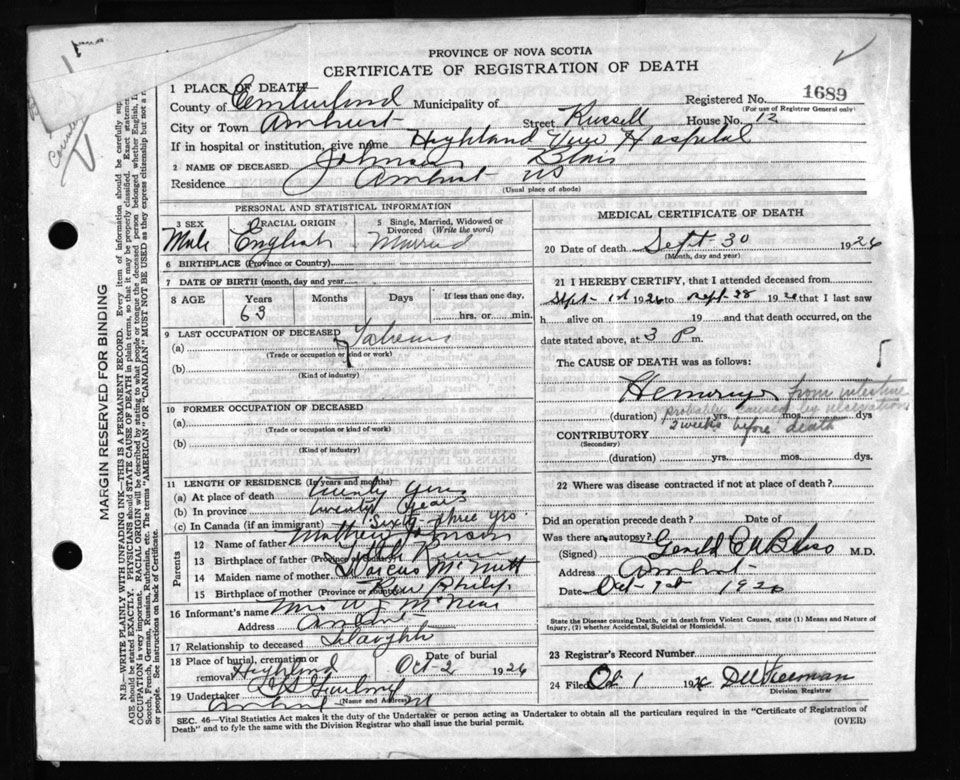 PROVINCE OF NOVA SCOTIA
CERTIFICATE OF REGISTRATION OF DEATH
1 PLACE OF DEATH
Registered No. 1689
(For use of Registrar General only)
County of Cumberland Municipality of
City or Town Amherst Street Russell House No. 12
If in hospital or institution, give name Highland View Hospital
2 NAME OF DECEASED Johnson Blair
Residence Amherst NS
(Usual place of abode)
PERSONAL AND STATISTICAL INFORMATION
3 SEX Male
RACIAL ORIGIN English
5 Single, Married, Widowed or Divorced (Write the word) Married
6 BIRTHPLACE (Province or Country)
7 DATE OF BIRTH (month, day and year)
8 AGE Years Months Days If less than one day, hrs. or min.
63
9 LAST OCCUPATION OF DECEASED
(a)
(Trade or occupation or kind or work)
(b)
(Kind of industry)
10 FORMER OCCUPATION OF DECEASED
(a)
(Trade or occupation or kind of work)
(b)
(Kind of industry)
11 LENGTH OF RESIDENCE (In years and months)
(a) At place of death twenty years
(b) In province twenty years
(c) In Canada (if an immigrant) Sixty-three yrs.
Parents
12 Name of father Mathew Johnson
13 Birthplace of father (Province or country)
14 Maiden name of mother Dorcus McNutt
15 Birthplace of mother (Province or country) River Philip
16 Informant's name Mrs W J McNeas
Address Amherst
17 Relationship to deceased Daughter
18 Place of burial, cremation or removal Highland Date of burial Oct-2 1926
19 Undertaker
(Name and Address)
Amherst NS
MEDICAL CERTIFICATE OF DEATH
20 Date of death Sept-30 1926
(Month, day and year)
21 I HEREBY CERTIFY, that I attended deceased from
Sept-1st 1926 to Sept-28 1926 that I last saw
h alive on 19 and that death occurred, on
date stated above, at 3 P m.
The CAUSE OF DEATH was as follows:
Hemorrage from intestine
(duration) yrs. mos. dys
probably caused by ulcerations
2 weeks before death
CONTRIBUTORY
(Secondary)
(duration) yrs. mos. dys.
22 Where was disease contracted if not at place of death?
Did an operation precede death? Date of
Was there an autopsy?
(Signed) Gerald C W Bliss M.D.
Address Amherst
Date Oct-1st 1926
State the Disease causing Death, or in death from Violent Causes, state (1) Means and Nature of Injury, (2) whether Accidental, Suicidal or Homicidal.
23 Registrar's Record Number
24 Filed Oct 1 1926
Division Registrar
SEC. 46—Vital Statistics Act makes it the duty of the Undertaker or person acting as Undertaker to obtain all the particulars required in the "Certificate of Registration of
Death" and to fyle the same with the Division Registrar who shall issue the burial permit.
(OVER)
MARGIN RESERVED FOR BINDING
N.B.—WRITE PLAINLY WITH UNFADING INK—THIS IS A PERMANENT RECORD. Every item of information should be carefully
AGE should be stated EXACTLY. PHYSICIANS should STATE CAUSE OF DEATH in plain terms, so that it may be properly classified. Exact
OCCUPATION is very important. RACIAL ORIGIN will be described by stating to what people or tongue the deceased person belonged whether English,
Scotch, French, German, Russian, Ruthenian, etc. The terms "AMERICAN" OR "CANADIAN" MUST NOT BE USED as they express citizenship but not a
or people. See instructions on back of Certificate.